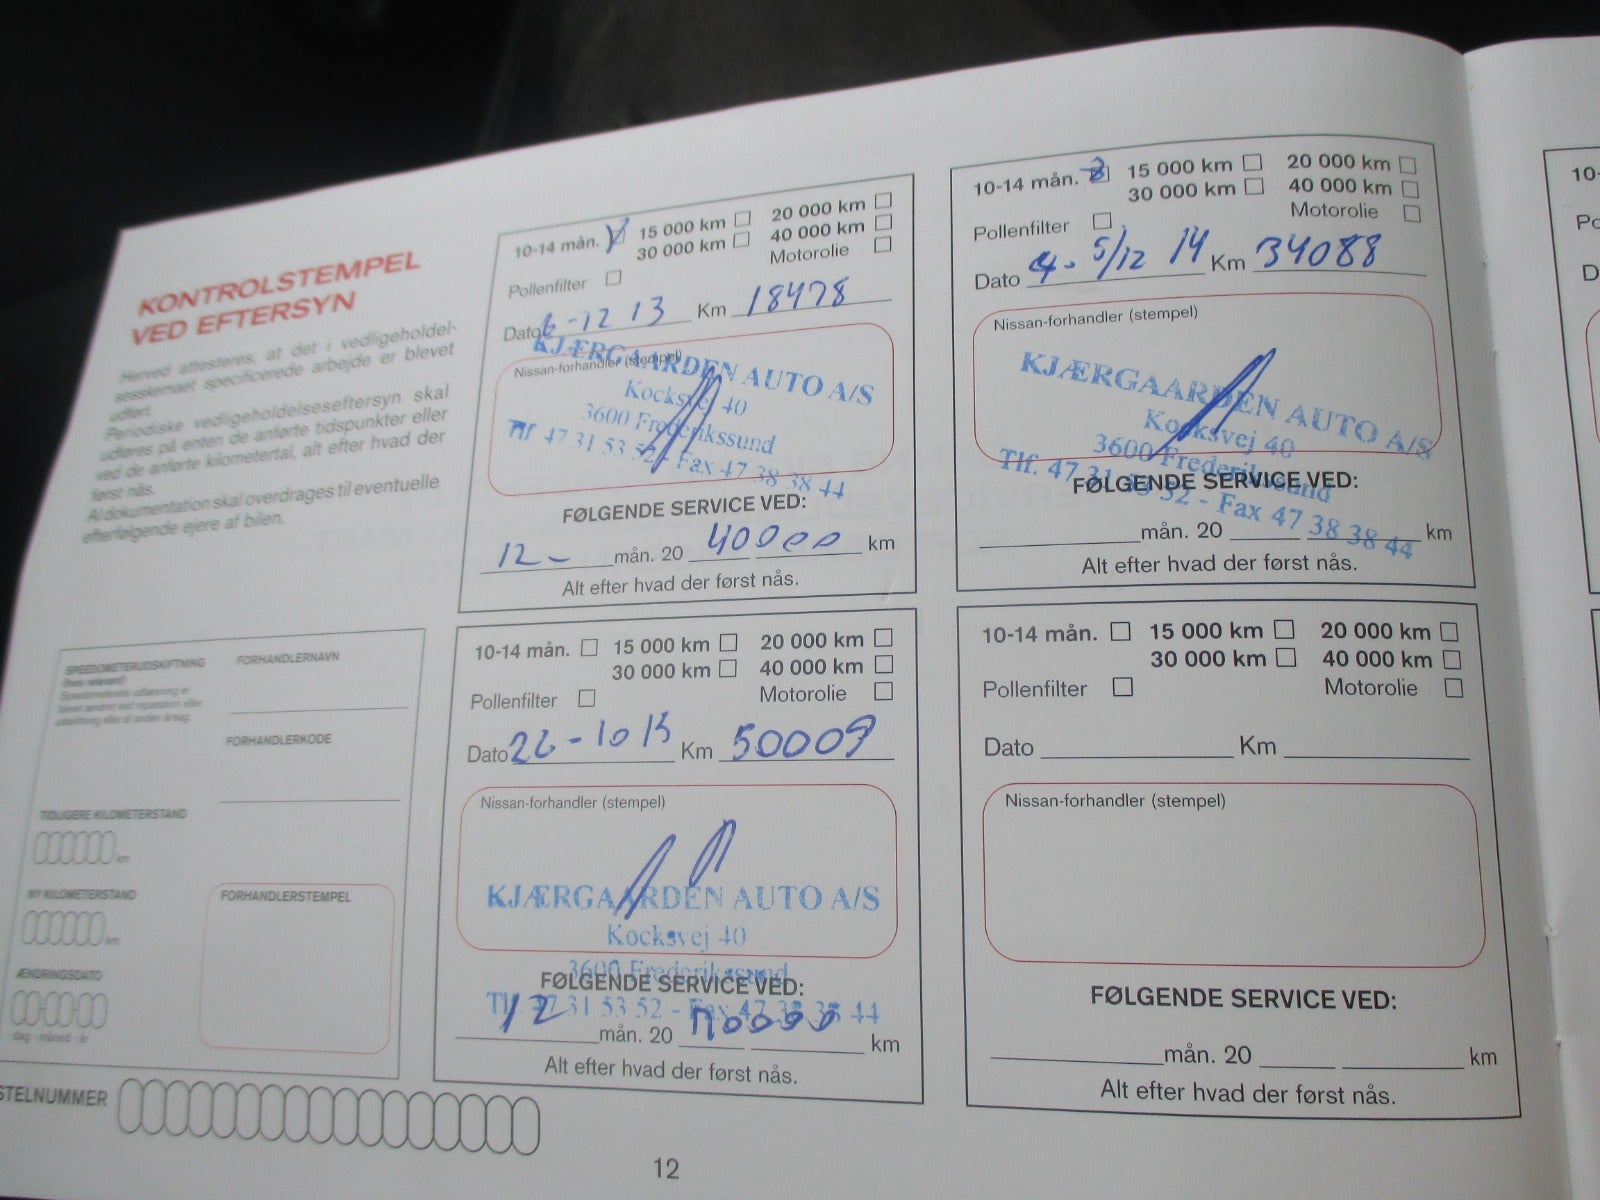 KONTROLSTEMPEL
VED EFTERSYN
Herved attesteres, at det i vedligeholdel-
sesskemaet specificerede arbejde er blevet
udført.
Periodiske vedligeholdelseseftersyn skal
udføres på enten de anførte tidspunkter eller
ved de anførte kilometertal, alt efter hvad der
først nås.
Al dokumentation skal overdrages til eventuelle
efterfølgende ejere af bilen.
SPEEDOMETERUDSKIFTNING
(hvis relevant)
FORHANDLERNAVN
FORHANDLERKODE
TIDLIGERE KILOMETERSTAND
km
NY KILOMETERSTAND
km
ÆNDRINGSDATO
dag - måned - år
FORHANDLERSTEMPEL
STELNUMMER
10-14 mån. 15 000 km 20 000 km
30 000 km 40 000 km
Motorolie
Pollenfilter
Dato 6-12 13 Km 18478
Nissan-forhandler (stempel)
KJÆRGAARDEN AUTO A/S
Kocksvej 40
3600 Frederikssund
Tlf. 47 31 53 52 - Fax 47 38 38 44
FØLGENDE SERVICE VED:
12- mån. 20 40000 km
Alt efter hvad der først nås.
10-14 mån. 15 000 km 20 000 km
30 000 km 40 000 km
Motorolie
Pollenfilter
Dato 5/12 14 Km 34088
Nissan-forhandler (stempel)
KJÆRGAARDEN AUTO A/S
Kocksvej 40
3600 Frederikssund
Tlf. 47 31 53 52 - Fax 47 38 38 44
FØLGENDE SERVICE VED:
mån. 20 km
Alt efter hvad der først nås.
10-14 mån. 15 000 km 20 000 km
30 000 km 40 000 km
Pollenfilter Motorolie
Dato 26-10 15 Km 50009
Nissan-forhandler (stempel)
KJÆRGAARDEN AUTO A/S
Kocksvej 40
3600 Frederikssund
FØLGENDE SERVICE VED:
Tlf. 47 31 53 52 - Fax 47 38 38 44
12 mån. 20 km
Alt efter hvad der først nås.
10-14 mån. 15 000 km 20 000 km
30 000 km 40 000 km
Pollenfilter Motorolie
Dato Km
Nissan-forhandler (stempel)
FØLGENDE SERVICE VED:
mån. 20 km
Alt efter hvad der først nås.
12
10-